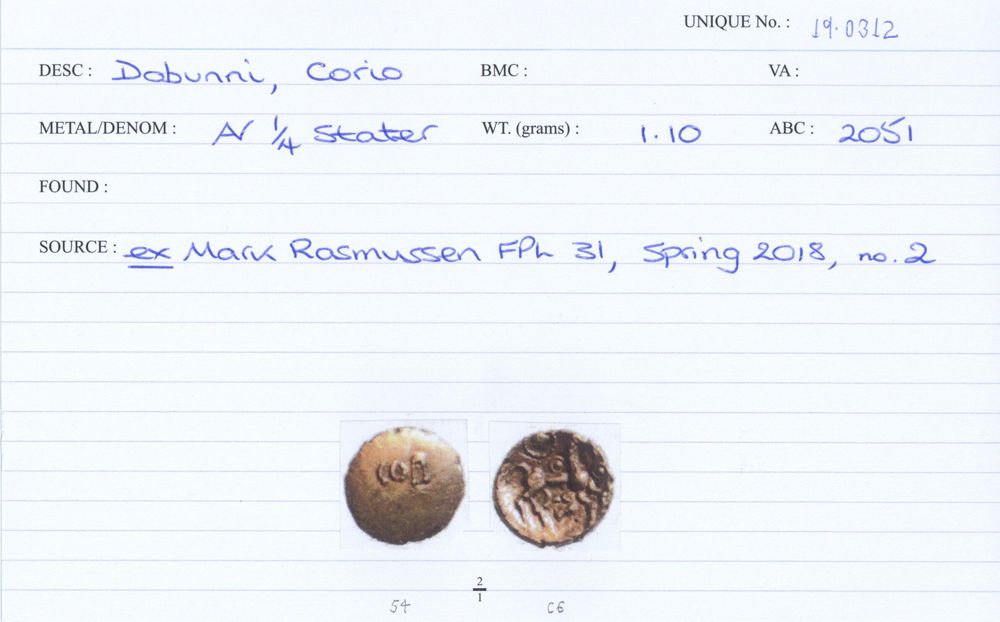 UNIQUE No. : 19.0312
DESC : Dobunni, Corio BMC : VA :
METAL/DENOM : AV 1/4 Stater WT. (grams) : 1.10 ABC : 2051
FOUND :
SOURCE : ex Mark Rasmussen FPL 31, Spring 2018, no. 2
COꞮ
2/1
54 C6